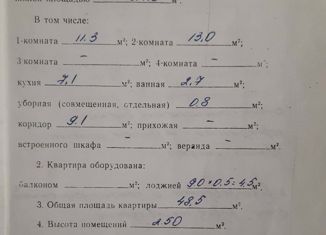 В том числе:
1-комната 11.3 м²; 2-комната 13,0 м²;
3-комната – м²; 4-комната – м²;
кухня 7,1 м²; ванная 2,7 м²;
уборная (совмещенная, отдельная) 0.8 м²;
коридор 9.1 м²; прихожая – м²;
встроенного шкафа – м²; веранда – м².
2. Квартира оборудована:
балконом м²; лоджией 90*0.5=4,5 м².
3. Общая площадь квартиры 48,5 м².
4. Высота помещений 2.50 м.